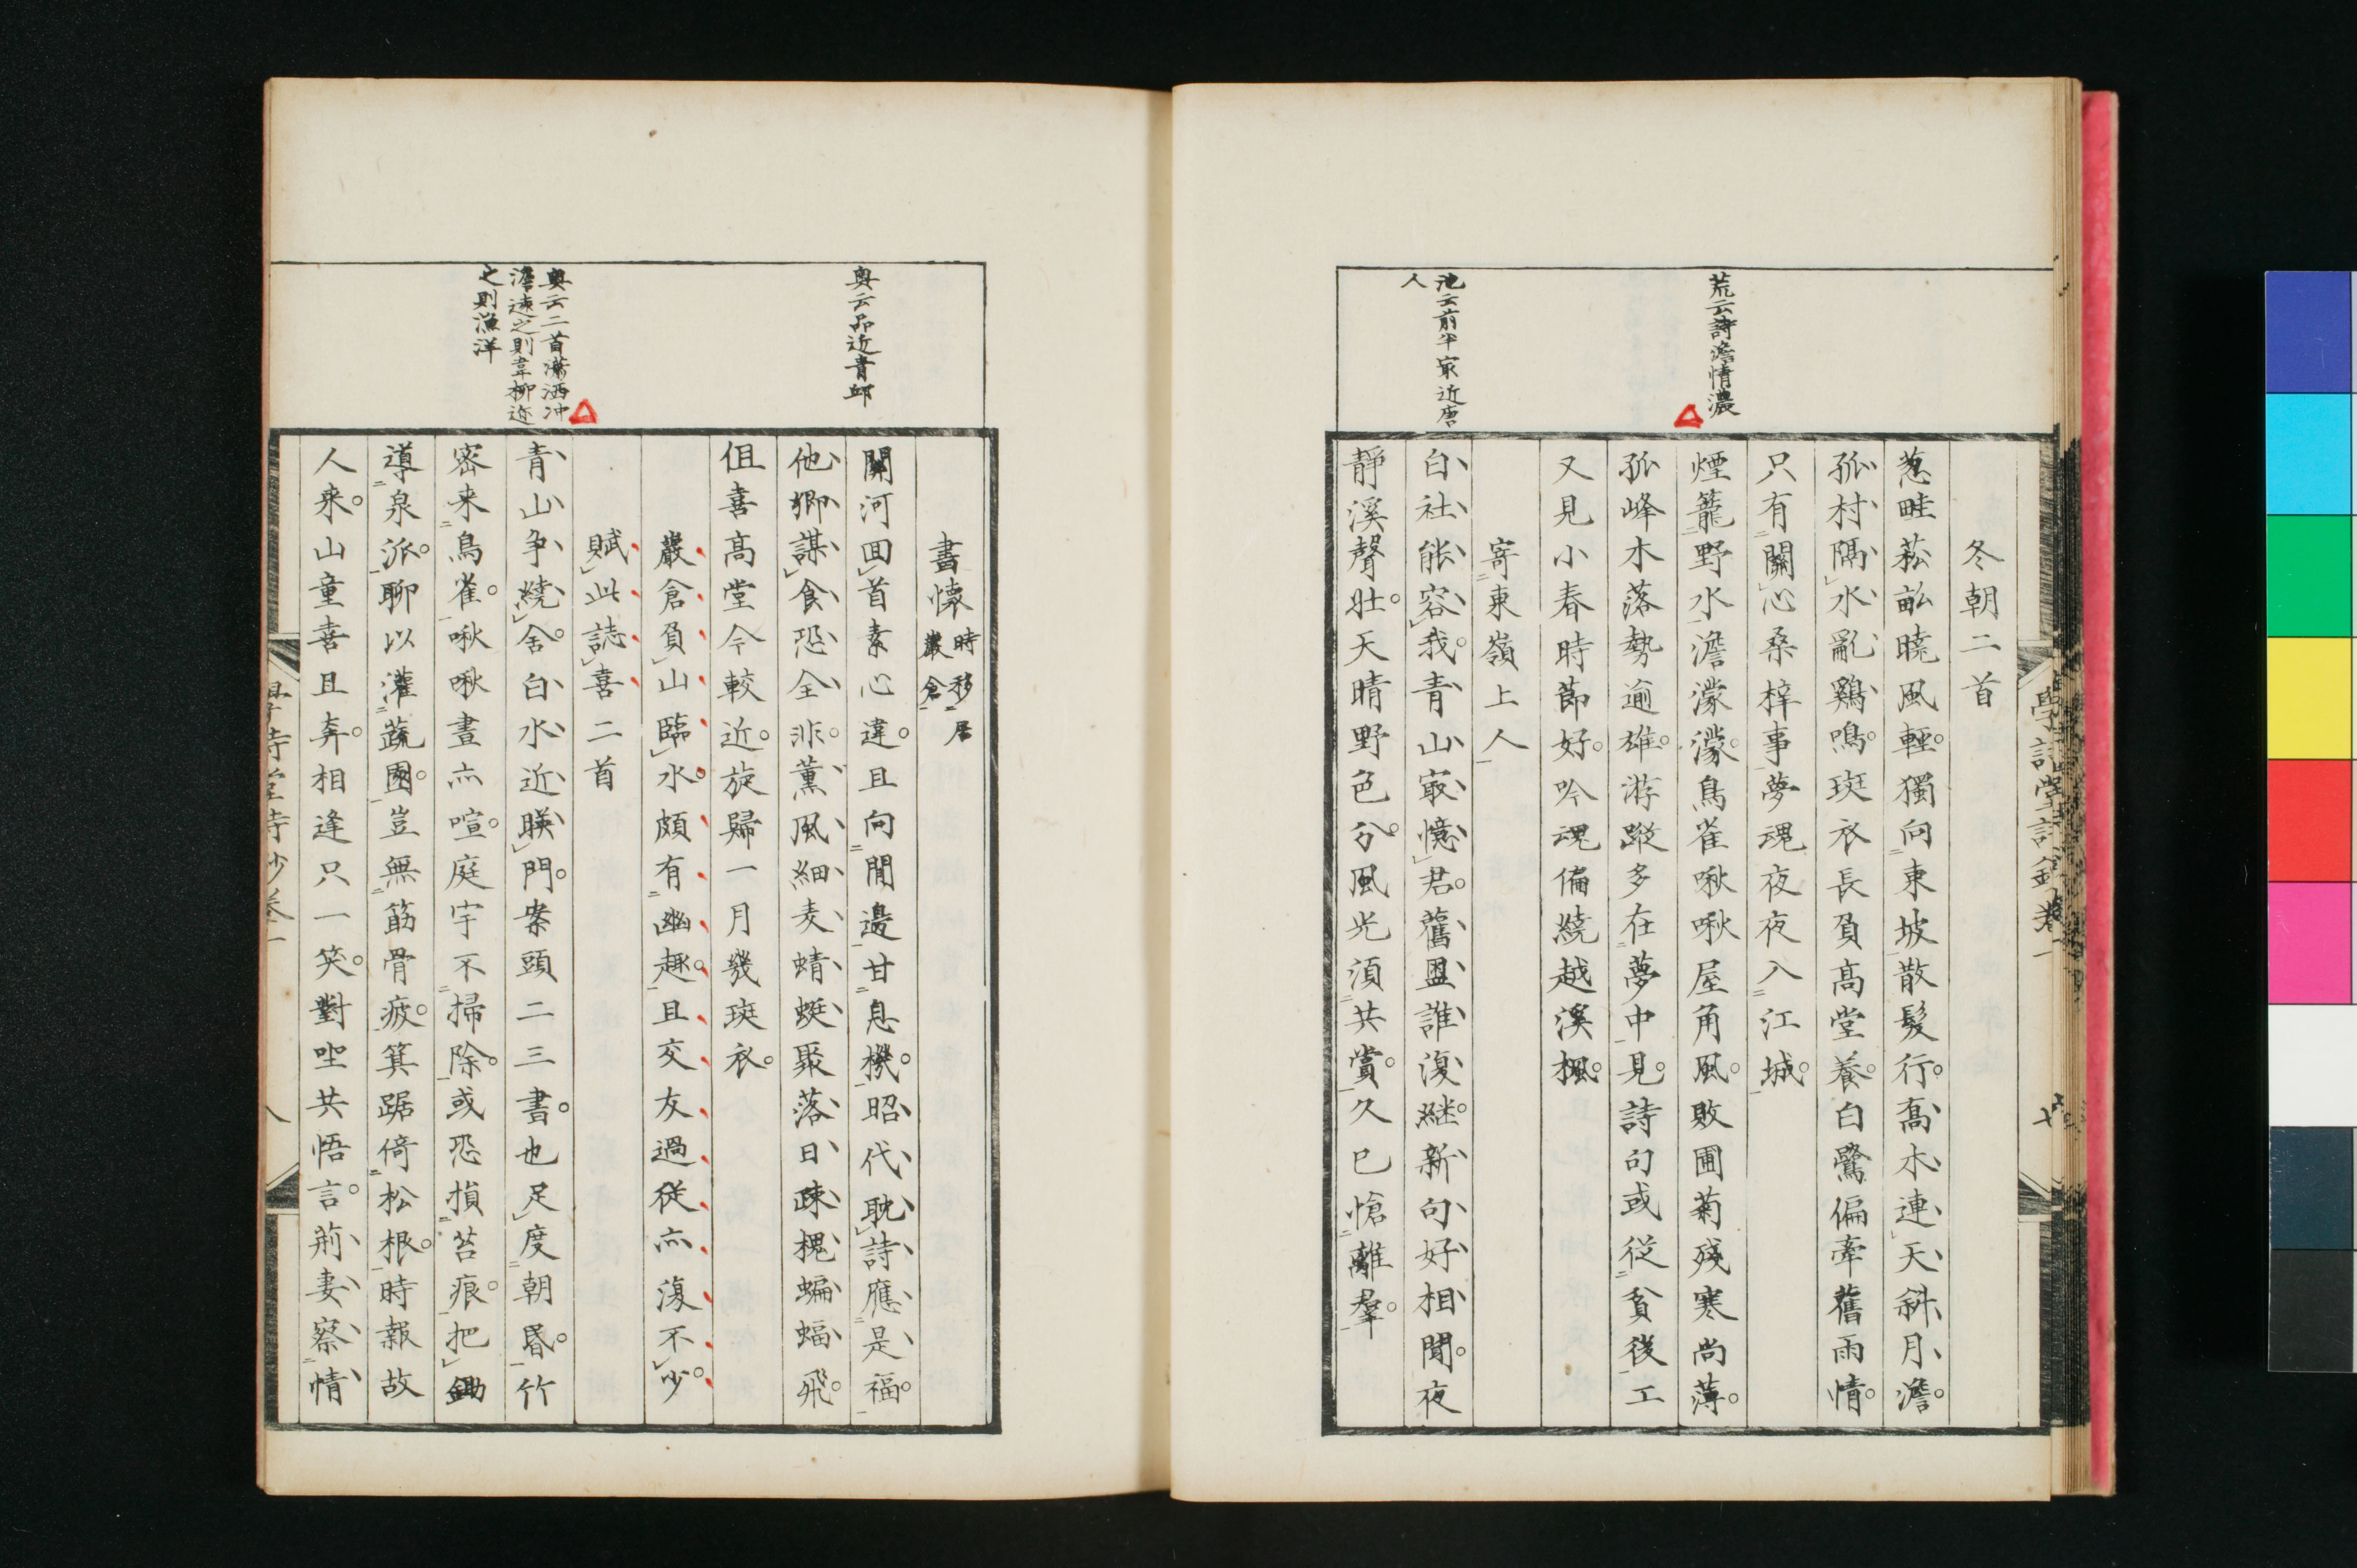 荒云詩澹情濃
池云前半㝡近唐
人
冬朝二首
葱畦菘畝曉風輕獨向東坡散髮行喬木連天斜月澹
孤村隔水亂鷄鳴斑衣長負高堂養白鷺偏牽舊雨情
只有關心桑梓事夢魂夜夜入江城
煙籠野水澹濛濛鳥雀啾啾屋角風敗圃菊殘寒尚薄
孤峰木落勢逾雄游蹤多在夢中見詩句或從貧後工
又見小春時節好吟魂偏繞越溪楓
寄東嶺上人
白社能容我青山㝡憶君舊盟誰復継新句好相聞夜
靜溪聲壯天晴野色分風光須共賞久已愴離羣
奥云品近青邱
奥云二首瀟洒冲
澹遠之則韋柳近
之則漁洋
書懷
時移居
巖倉
關河回首素心違且向閒邊甘息機昭代耽詩應是福
他鄉謀食恐全非薰風細麦蜻蜓聚落日疎槐蝙蝠飛
但喜高堂今較近旋歸一月幾斑衣
巖倉負山臨水頗有幽趣且交友過從亦復不少
賦此誌喜二首
青山争繞舍白水近暎門案頭二三書也足度朝昏竹
密来鳥雀啾啾晝亦喧庭宇不掃除或恐損苔痕把鋤
導泉派聊以灌蔬園豈無筋骨疲箕踞倚松根時報故
人来山童喜且奔相逢只一笑對坐共悟言荊妻察情
學詩堂詩鈔卷一
八